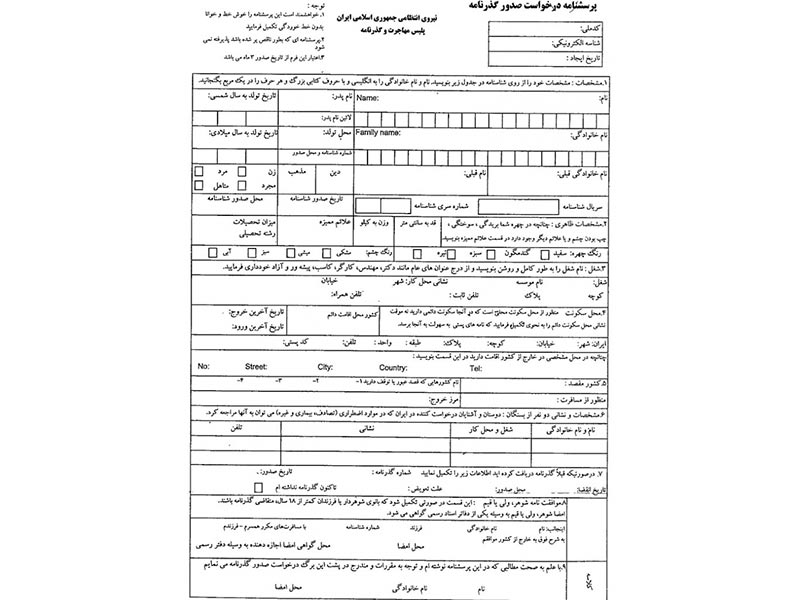 پرسشنامه درخواست صدور گذرنامه
کدملی:
شناسه الکترونیکی:
تاریخ ایجاد :
نیروی انتظامی جمهوری اسلامی ایران
پلیس مهاجرت و گذرنامه
توجه :
۱. خواهشمند است این پرسشنامه را خوش خط و خوانا
بدون خط خوردگی تکمیل فرمایید
۲.پرسشنامه ای که بطور ناقص پر شده باشد پذیرفته نمی
شود
۳.اعتبار این فرم از تاریخ صدور ۲ ماه می باشد
۱.مشخصات : مشخصات خود را از روی شناسنامه در جدول زیر بنویسید. نام و نام خانوادگی را به انگلیسی و با حروف کتابی بزرگ و هر حرف را در یک مربع بگنجانید.
نام: Name: نام پدر: تاریخ تولد به سال شمسی:
لاتین نام پدر:
نام خانوادگی: Family name: محل تولد: تاریخ تولد به سال میلادی:
شماره شناسنامه و محل صدور
نام خانوادگی قبلی: نام قبلی: دین مذهب زن مرد
مجرد متاهل
سریال شناسنامه شماره سری شناسنامه تاریخ صدور شناسنامه محل صدور شناسنامه
۲.مشخصات ظاهری : چنانچه در چهره شما بریدگی ، سوختگی ، قد به سانتی متر وزن به کیلو علائم ممیزه میزان تحصیلات
چپ بودن چشم و یا علائم دیگر وجود دارد در قسمت علائم ممیزه بنویسید. رشته تحصیلی
رنگ چهره: سفید گندمگون سبزه تیره رنگ چشم: مشکی میشی سبز آبی
۳.شغل : نام شغل را به طور کامل و روشن بنویسید و از درج عنوان های عام مانند دکتر، مهندس، کارگر، کاسب، پیشه ور و آزاد خودداری فرمایید.
شغل: نام موسسه نشانی محل کار: شهر خیابان
کوچه پلاک تلفن ثابت : تلفن همراه:
۴.محل سکونت منظور از محل سکونت محلی است که در آنجا سکونت دائمی دارید نه موقت کشور محل اقامت دائم تاریخ آخرین خروج:
نشانی محل سکونت دائم را به نحوی تکمیل فرمایید که نامه های پستی به سهولت به آنجا برسد. تاریخ آخرین ورود:
ایران: شهر: خیابان: کوچه: پلاک: طبقه : واحد : تلفن: کد پستی:
چنانچه در محل مشخصی در خارج از کشور اقامت دارید در این قسمت بنویسید :
No: Street: City: Country: Tel:
۵.کشور مقصد : نام کشورهایی که قصد عبور یا توقف دارید ۱- ۲- ۳- ۴-
منظور از مسافرت : مرز خروج:
۶.مشخصات و نشانی دو نفر از بستگان : دوستان و آشنایان درخواست کننده در ایران که در موارد اضطراری (تصادف، بیماری و غیره) می توان به آنها مراجعه کرد.
نام و نام خانوادگی شغل و محل کار نشانی تلفن
۷. درصورتیکه قبلاً گذرنامه دریافت کرده اید اطلاعات زیر را تکمیل نمایید شماره گذرنامه : تاریخ صدور:
تاریخ انقضا: محل صدور: علت تعویض : تاکنون گذرنامه نداشته ام
۸.موافقت نامه شوهر، ولی یا قیم : این قسمت در صورتی تکمیل شود که بانوی شوهردار یا فرزندان کمتر از ۱۸ سال، متقاضی گذرنامه باشند.
امضا شوهر، ولی یا قیم به وسیله یکی از دفاتر اسناد رسمی گواهی می شود.
اینجانب: نام نام خانوادگی فرزند شماره شناسنامه با مسافرت‌های مکرر همسرم - فرزندم
به شرح فوق به خارج از کشور موافقم
محل امضا محل گواهی امضا اجازه دهنده به وسیله دفتر رسمی
۹.با علم به صحت مطالبی که در این پرسشنامه نوشته ام و توجه به مقررات و مندرج در پشت این برگ درخواست صدور گذرنامه می نمایم
نام نام خانوادگی محل امضا